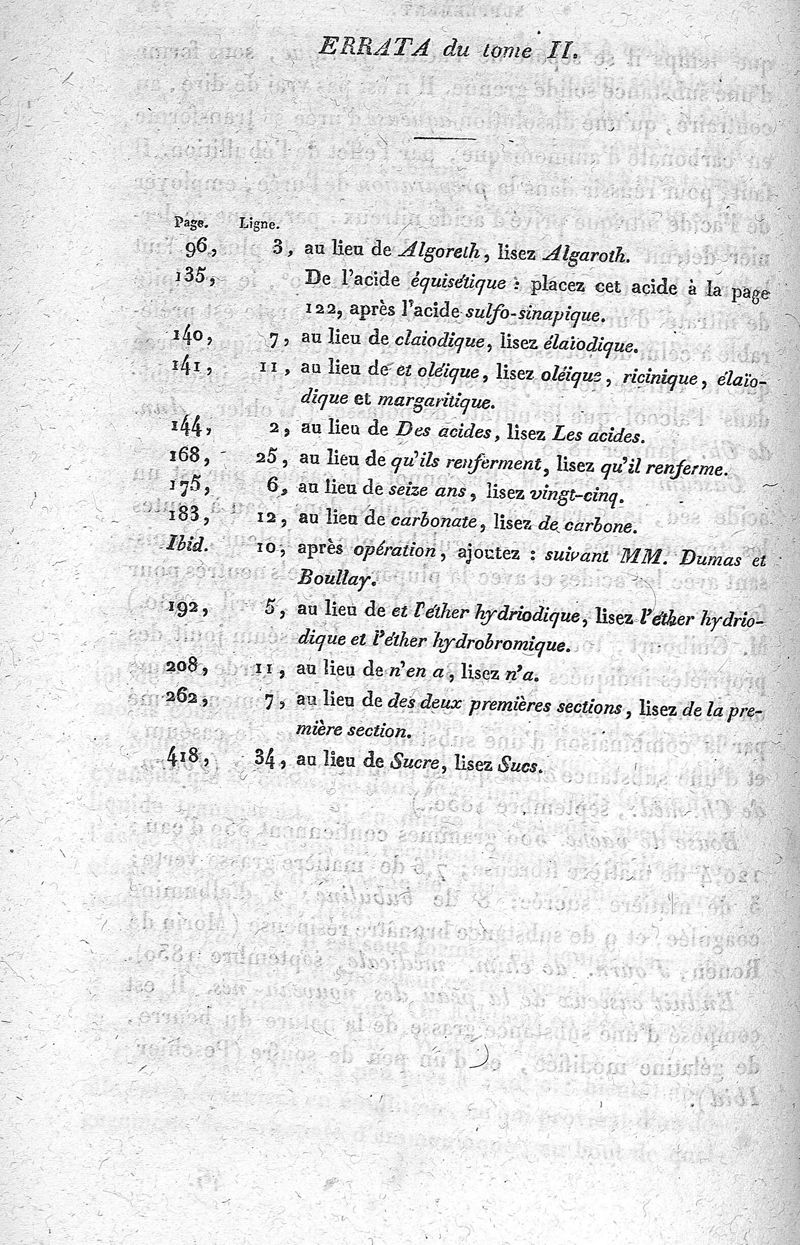 ERRATA du tome II.
Page. Ligne.
96, 3, au lieu de Algoreth, lisez Algaroth.
135, De l'acide équisétique : placez cet acide à la page
122, après l'acide sulfo-sinapique.
140, 7, au lieu de claiodique, lisez élaiodique.
141, 11, au lieu de et oléïque, lisez oléique, ricinique, élaïo-
dique et margaritique.
144, 2, au lieu de Des acides, lisez Les acides.
168, 25, au lieu de qu'ils renferment, lisez qu'il renferme.
175, 6, au lieu de seize ans, lisez vingt-cinq.
183, 12, au lieu de carbonate, lisez de carbone.
Ibid. 10, après opération, ajoutez : suivant MM. Dumas et
Boullay.
192, 5, au lieu de et l'éther hydriodique, lisez l'éther hydrio-
dique et l'éther hydrobromique.
208, 11, au lieu de n'en a, lisez n'a.
262, 7, au lieu de des deux premières sections, lisez de la pre-
mière section.
418, 34, au lieu de Sucre, lisez Sucs.